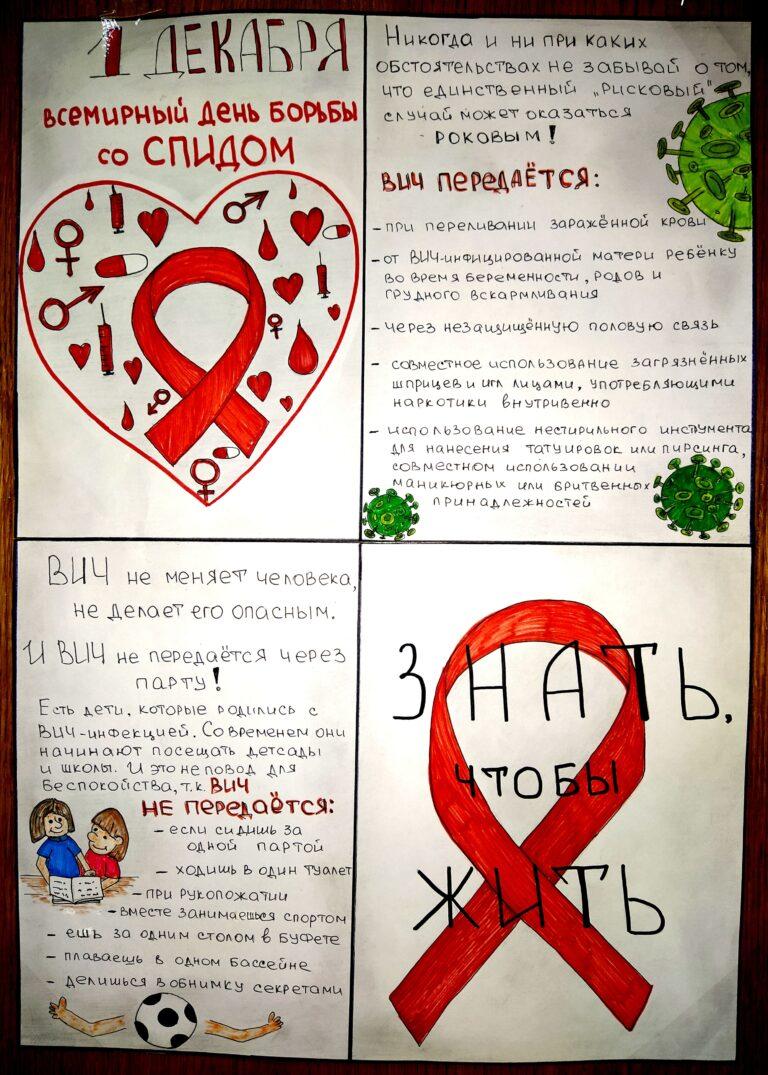 1 ДЕКАБРЯ
ВСЕМИРНЫЙ ДЕНЬ БОРЬБЫ
СО СПИДОМ
Никогда и ни при каких
обстоятельствах не забывай о том,
что единственный „рисковый"
случай может оказаться
роковым!
ВИЧ ПЕРЕДАЁТСЯ:
- при переливании заражённой крови
- от ВИЧ-инфицированной матери ребёнку
во время беременности, родов и
грудного вскармливания
- через незащищённую половую связь
- совместное использование загрязнённых
шприцев и игл лицами, употребляющими
наркотики внутривенно
- использование нестирильного инструмента
для нанесения татуировок или пирсинга,
совместном использовании
маникюрных или бритвенных
принадлежностей
ВИЧ не меняет человека,
не делает его опасным.
И ВИЧ не передаётся через
парту!
Есть дети, которые родились с
ВИЧ-инфекцией. Со временем они
начинают посещать детсады
и школы. И это не повод для
беспокойства, т.к. ВИЧ
НЕ ПЕРЕДАЁТСЯ:
- если сидишь за
одной партой
- ходишь в один туалет
- при рукопожатии
- вместе занимаешься спортом
- ешь за одним столом в буфете
- плаваешь в одном бассейне
- делишься в обнимку секретами
ЗНАТЬ,
ЧТОБЫ
ЖИТЬ